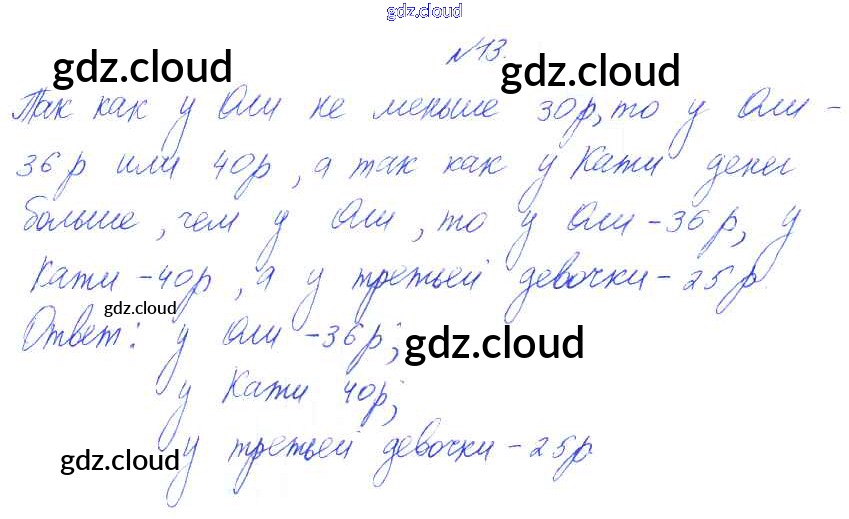 gdz.cloud
№13.
gdz.cloud
gdz.cloud
Так как у Оли не меньше 30р, то у Оли -
36р или 40р, а так как у Кати денег
больше, чем у Оли, то у Оли - 36р, у
Кати - 40р, а у третьей девочки - 25р
gdz.cloud
Ответ: у Оли - 36р;
gdz.cloud
у Кати 40р;
у третьей девочки - 25р
gdz.cloud